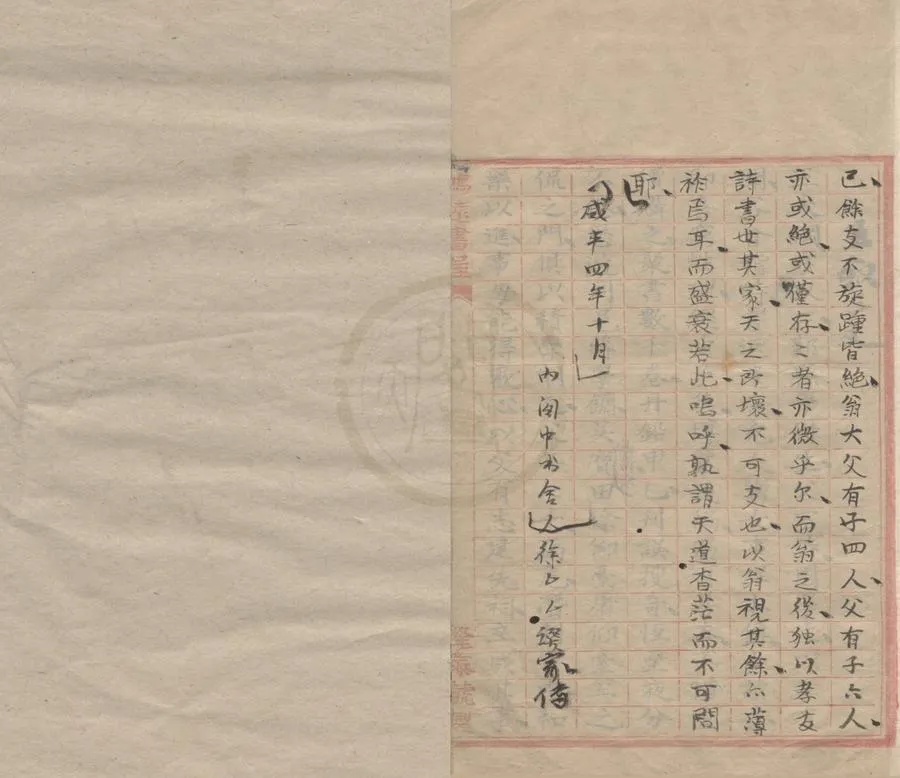 已餘支不旋踵皆絶翁大父有子四人父有子六人
亦或絶或僅存〻者亦微乎尔而翁之後独以孝友
詩書世其家天之所壞不可支也以翁視其餘亦薄
祚焉耳而盛衰若此嗚呼孰謂天道杳茫而不可問
耶
咸丰四年十月
内阁中书舍人徐
家傳